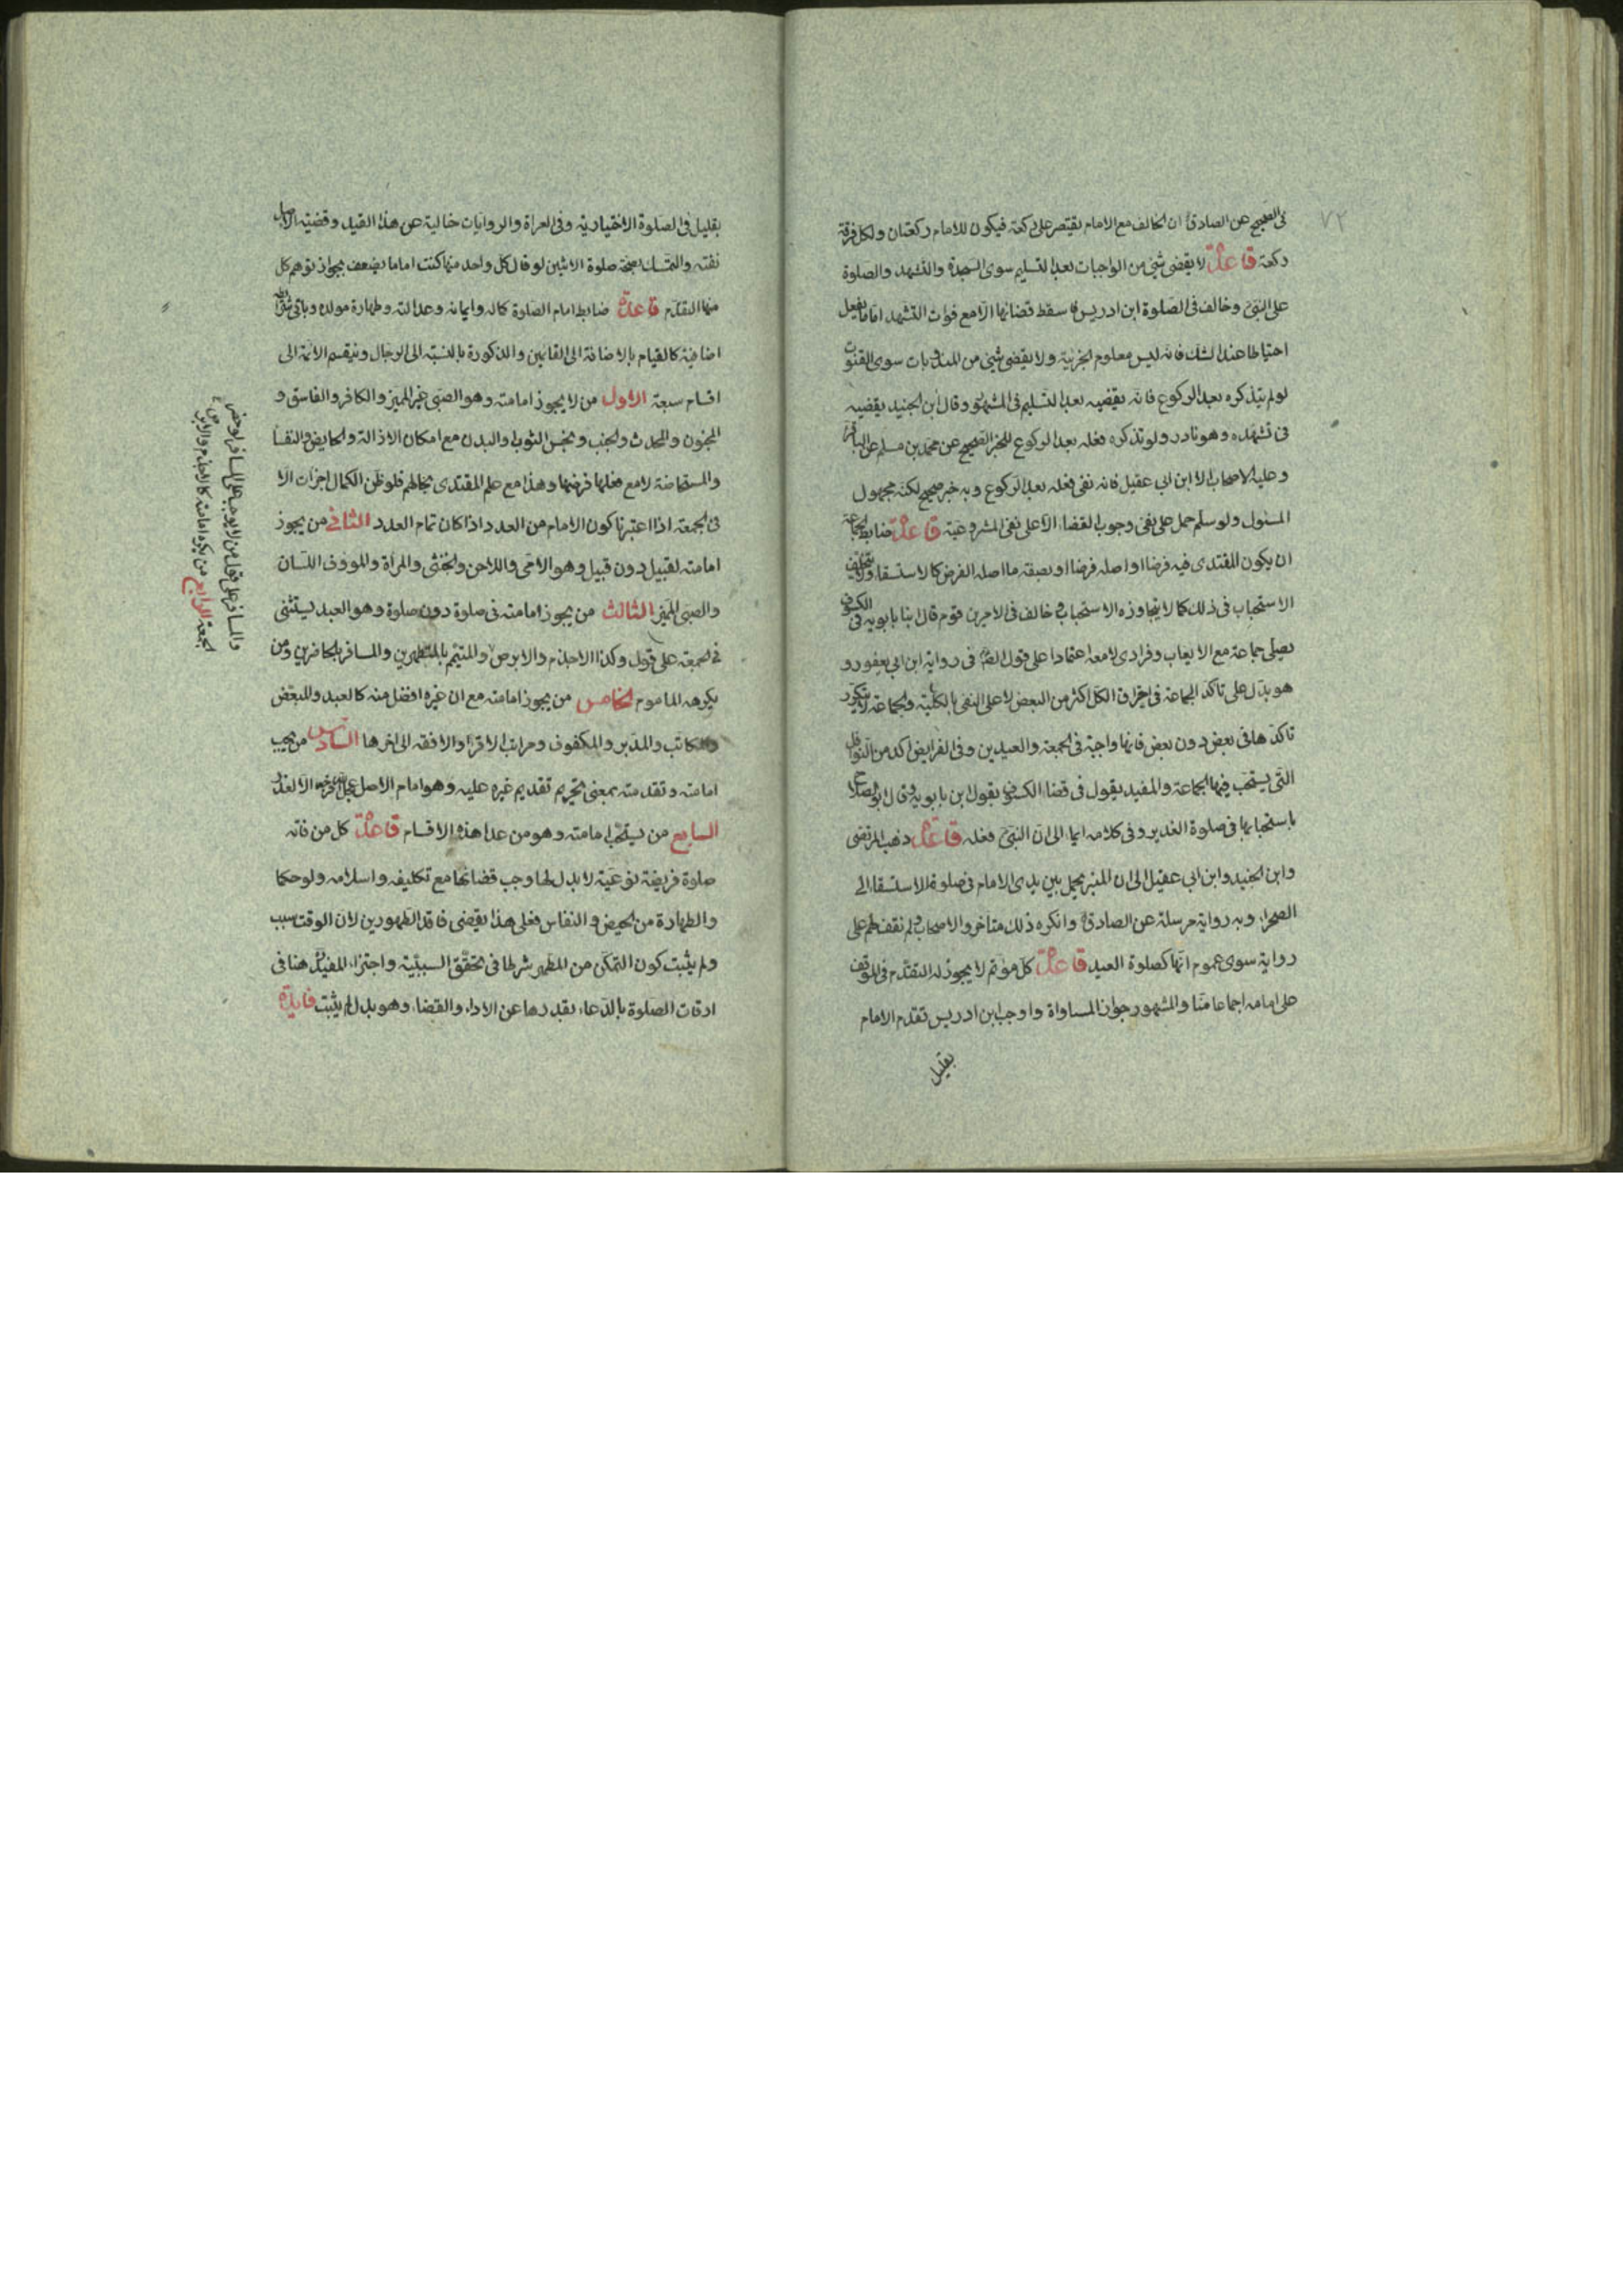 ٧٢
فى الصحيح عن الصادق ان الخائف مع الامام يقتصر على ركعة فيكون للامام ركعتان ولكل فرقة
ركعة قاعدة لا يقضى شئ من الواجبات بعد التسليم سوى السجدة والتشهد والصلوة
على النبى وخالف فى الصلوة ابن ادريس فاسقط قضائها الا مع فوات التشهد اما ما يفعل
احتياطا عند الشك فانه ليس معلوم الجزئية ولا يقضى شئ من المندوبات سوى القنوت
لو لم يتذكره بعد الركوع فانه يقضيه بعد التسليم فى المشهور وقال ابن الجنيد يقضيه
فى تشهده وهو نادر ولو تذكره فعله بعد الركوع للخبر الصحيح عن محمد بن مسلم عن الباقر
وعليه الاصحاب الا ابن ابى عقيل فانه نفى فعله بعد الركوع وبه خبر صحيح لكنه مجهول
المسئول ولو سلم حمل على نفى وجوب القضاء لا على نفى المشروعية قاعدة ضابط الجماعة
ان يكون المقتدى فيه فرضا او اصله فرضا او بصفة ما اصله الفرض كالاستسقاء ولا يتخلف
الاستحباب فى ذلك كما لا يتجاوزه الاستحباب وخالف فى الامرين قوم قال ابنا بابويه فى الكسوف
يصلى جماعة مع الايعاب وفرادى لا معه اعتمادا على قول الصادق فى رواية ابن ابى يعفور و
هو يدل على تاكد الجماعة فى احتراق الكل اكثر من البعض لا على النفى بالكلية والجماعة لا ينكر
تاكدها فى بعض دون بعض فانها واجبة فى الجمعة والعيدين وفى الفرايض اكد من النوافل
التى يستحب فيها الجماعة والمفيد يقول فى قضاء الكسوف بقول ابن بابويه وقال ابو الصلاح
باستحبابها فى صلوة الغدير وفى كلامه ايماء الى ان النبى فعله قاعدة ذهب المرتضى
وابن الجنيد وابن ابى عقيل الى ان المنبر يحمل بين يدى الامام فى صلوة الاستسقاء الى
الصحراء وبه رواية مرسلة عن الصادق وانكره ذلك متاخروا الاصحاب ولم نقف لهم على
رواية سوى عموم انها كصلوة العيد قاعدة كل مؤتم لا يجوز له التقدم فى الموقف
على امامه اجماعا منا والمشهور جواز المساواة واوجب ابن ادريس تقدم الامام
بقليل
بقليل فى الصلوة الاختيارية وفى العراة والروايات خالية عن هذا القيد وقضية الاصل
نفته والتمسك بصحة صلوة الاثنين لو قال كل واحد منهما كنت اماما يضعف بجواز توهم كل
منهما التقدم قاعدة ضابط امام الصلوة كماله وايمانه وعدالته وطهارة مولده وباقى شرايطه
اضافية كالقيام بالاضافة الى القائمين والذكورة بالنسبة الى الرجال وينقسم الائمة الى
اقسام سبعة الاول من لا يجوز امامته وهو الصبى غير المميز والكافر والفاسق و
المجنون والمحدث والجنب ونجس الثوب والبدن مع امكان الازالة والحايض والنفساء
والمستحاضة لا مع فعلها فرضها وهذا مع علم المقتدى بحالهم فلو ظن الكمال اجزات الا
فى الجمعة اذا اعتبرنا كون الامام من العدد اذا كان تمام العدد الثانى من يجوز
امامته لقبيل دون قبيل وهو الامى واللاحن والخنثى والمراة والمؤوف اللسان
والصبى المميز الثالث من يجوز امامته فى صلوة دون صلوة وهو العبد يستثنى
فى الجمعة على قول وكذا الاجذم والابرص والمتيمم بالمتطهرين والمسافر بالحاضرين ومن
يكرهه الماموم الخامس من يجوز امامته مع ان غيره افضل منه كالعبد والمبعض
والمكاتب والمدبر والمكفوف ومراتب الاقرا والافقه الى اخرها السادس من يجب
امامته وتقدمته بمعنى تحريم تقديم غيره عليه وهو امام الاصل عجل الله فرجه الا لعذر
السابع من يستحب امامته وهو من عدا هذه الاقسام قاعدة كل من فاته
صلوة فريضة نوعية لا بدل لها وجب قضائها مع تكليفه واسلامه ولو حكما
والطهارة من الحيض والنفاس فعلى هذا يقضى فاقد الطهورين لان الوقت سبب
ولم يثبت كون التمكن من المطهر شرطا فى تحقق السببية واجتزاء المفيد هنا فى
اوقات الصلوة بالدعاء بقدرها عن الاداء والقضاء وهو بدل لم يثبت فايدة
والمسافر على قول من لا يوجبها على المسافر لو حضر
الجمعة الرابع من يكره امامته كالاجذم والابرص